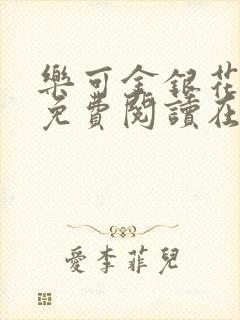 樂可金銀花
免費閱讀在
愛李菲兒